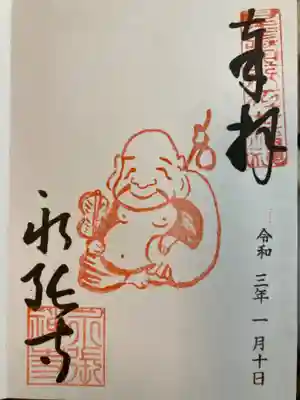 奉拝
令和三年一月十日
永張寺